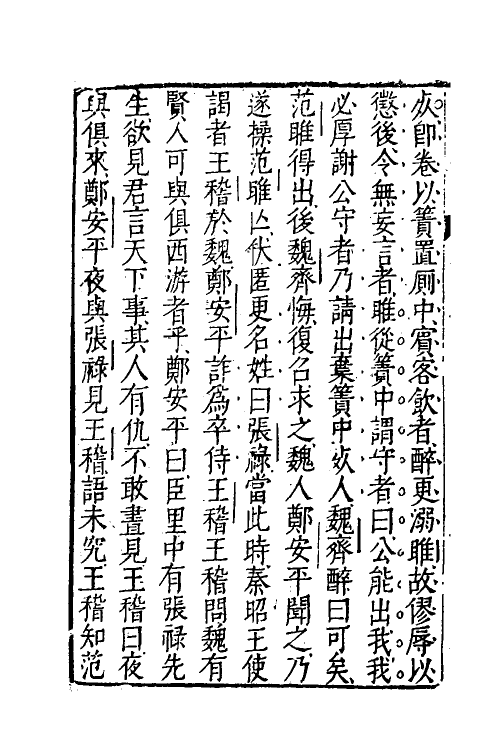 死即卷以簀置厠中賓客飲者醉更溺雎故僇辱以
懲後令無妄言者雎從簀中謂守者曰公能出我我
必厚謝公守者乃請出棄簀中死人魏齊醉曰可矣
范雎得出後魏齊悔復召求之魏人鄭安平聞之乃
遂操范雎亾伏匿更名姓曰張祿當此時秦昭王使
謁者王稽於魏鄭安平詐爲卒侍王稽王稽問魏有
賢人可與俱西游者乎鄭安平曰臣里中有張祿先
生欲見君言天下事其人有仇不敢晝見王稽曰夜
與俱來鄭安平夜與張祿見王稽語未究王稽知范